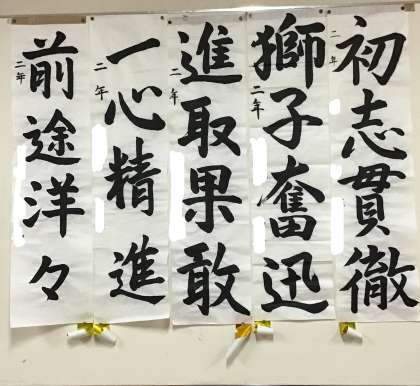 初志貫徹
二年
獅子奮迅
二年
進取果敢
二年
一心精進
二年
前途洋々
二年